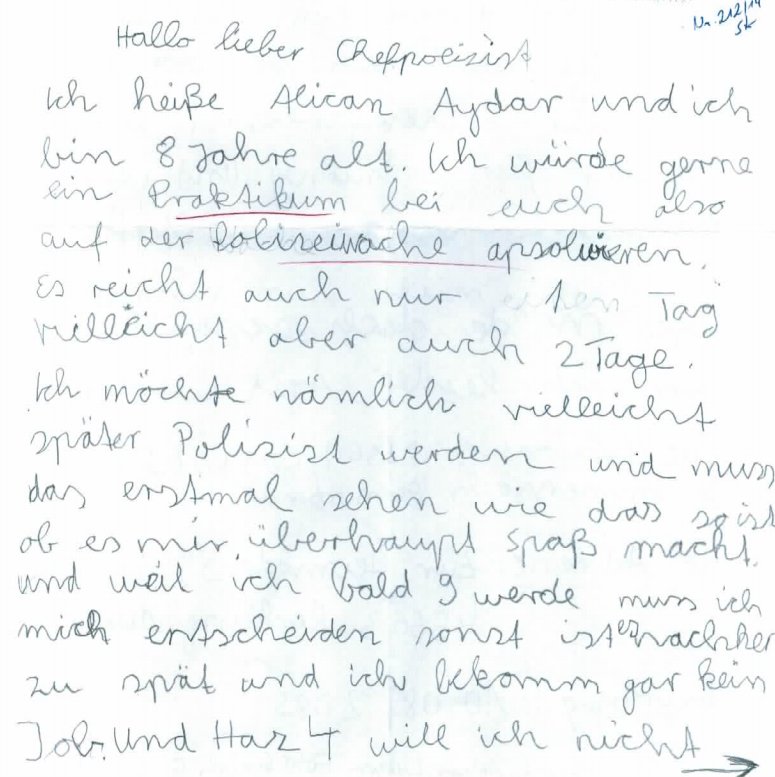 Nr. 212/14
Hallo lieber Chefpoizist
Ich heiße Alican Aydar und ich
bin 8 Jahre alt. Ich würde gerne
ein Praktikum bei euch also
auf der Polizeiwache apsolvieren.
Es reicht auch nur 1en Tag
vielleicht aber auch 2 Tage.
Ich möchte nämlich vielleicht
später Polizist werden und muss
das erstmal sehen wie das so ist
ob es mir überhaupt spaß macht.
und weil ich bald 9 werde muss ich
mich entscheiden sonst ist es nachher
zu spät und ich bekomm gar kein
Job. Und Harz 4 will ich nicht →